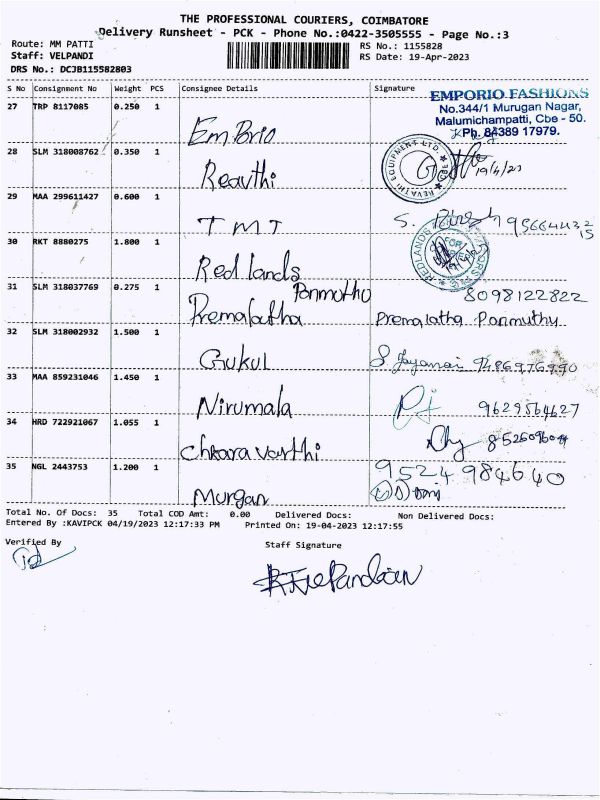 THE PROFESSIONAL COURIERS, COIMBATORE
Delivery Runsheet - PCK - Phone No.:0422-3505555 - Page No.:3
Route: MM PATTI
Staff: VELPANDI
DRS No.: DCJB115582803
RS No.: 1155828
RS Date: 19-Apr-2023
S No Consignment No Weight PCS Consignee Details Signature
EMPORIO FASHIONS
No.344/1 Murugan Nagar,
Malumichampatti, Cbe - 50.
Ph. 84389 17979.
27 TRP 8117085 0.250 1
Emporio
28 SLM 318008762 0.350 1
Reavthi
REVATHI EQUIPMENT LTD.
19/4/23
29 MAA 299611427 0.600 1
TMT
S.
30 RKT 8880275 1.800 1
Redlands
REDLANDS
31 SLM 318037769 0.275 1
Ponmuthu 8098122822
Premalatha Premalatha Ponmuthu
32 SLM 318002932 1.500 1
Gukul
33 MAA 859231046 1.450 1
Nirumala 9629564627
34 HRD 722921067 1.055 1
Chkaravarthi
35 NGL 2443753 1.200 1
9524984640
Murgan
Total No. Of Docs: 35 Total COD Amt: 0.00 Delivered Docs: Non Delivered Docs:
Entered By :KAVIPCK 04/19/2023 12:17:33 PM Printed On: 19-04-2023 12:17:55
Verified By
Staff Signature